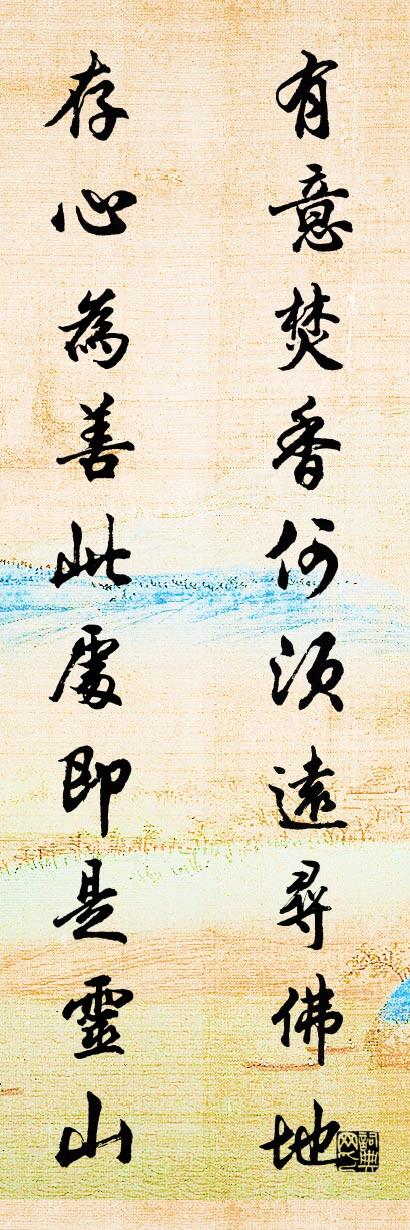 有意焚香何須遠尋佛地
存心為善此處即是靈山
詞典网